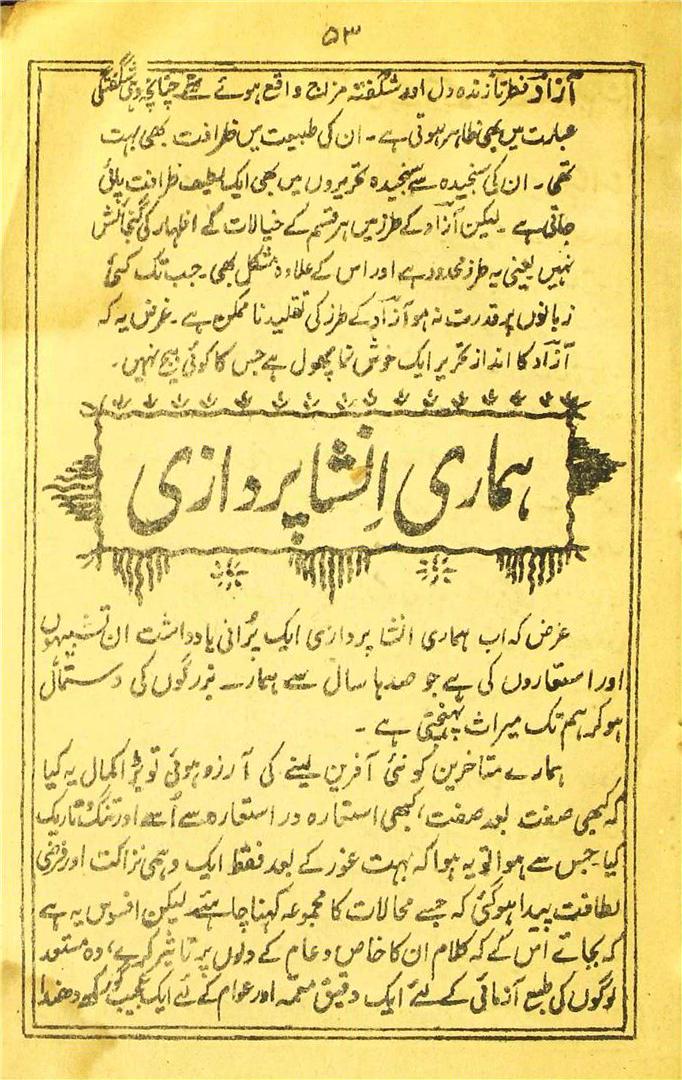 ۵۳
آزاد فطرتاً زندہ دل اور شگفتہ مزاج واقع ہوئے تھے چنانچہ وہی شگفتگی
عبارت میں بھی ظاہر ہوتی ہے ۔ ان کی طبیعت میں ظرافت بھی بہت
تھی ۔ ان کی سنجیدہ سے سنجیدہ تحریروں میں بھی ایک لطیف ظرافت پائی
جاتی ہے ۔ لیکن آزاد کے طرز میں ہر قسم کے خیالات کے اظہار کی گنجائش
نہیں یعنی یہ طرز محدود ہے اور اس کے علاوہ مشکل بھی ۔ جب تک کئی
زبانوں پر قدرت نہ ہو آزاد کے طرز کی تقلید نا ممکن ہے ۔ غرض یہ کہ
آزاد کا انداز تحریر ایک خوش نما پھول ہے جس کا کوئی بیج نہیں ۔
ہماری اِنشا پردازی
غرض کہ اب ہماری انشا پردازی ایک پُرانی یادداشت ان تشبیہوں
اور استعاروں کی ہے جو صدہا سال سے ہمارے بزرگوں کی دستمال
ہو کر ہم تک میراث پہنچتی ہے ۔
ہمارے متاخرین کو نئی آفرین لینے کی آرزو ہوئی تو بڑا کمال یہ کیا
کہ کبھی صفت بعد صفت، کبھی استعارہ در استعارہ سے اُسے اور تنگ و تاریک
کیا ۔ جس سے ہوا تو یہ ہوا کہ بہت غور کے بعد فقط ایک وہمی نزاکت اور فرضی
لطافت پیدا ہو گئی کہ جسے محالات کا مجموعہ کہنا چاہئے لیکن افسوس یہ ہے
کہ بجائے اس کے کہ کلام ان کا خاص و عام کے دلوں پر تاثیر کرے، وہ مستعد
لوگوں کی طبع آزمائی کے لئے ایک دقیق معمہ اور عوام کے لئے ایک عجیب گورکھ دھندا